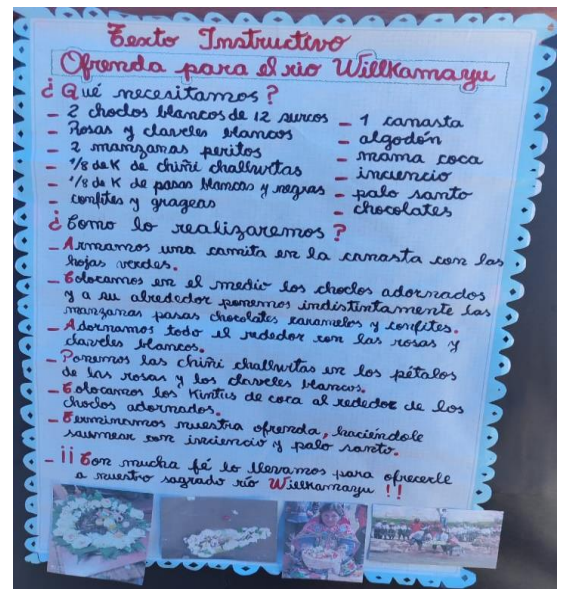 Texto Instructivo
Ofrenda para el rio Willkamayu
¿Qué necesitamos?
- 2 choclos blancos de 12 surcos
- Rosas y claveles blancos
- 2 manzanas peritos
- 1/8 de K de chiñi challwitas
- 1/8 de K de pasas blancas y negras
- confites y grageas
- 1 canasta
- algodón
- mama coca
- inciencio
- palo santo
- chocolates
¿Como lo realizaremos?
- Armamos una camita en la canasta con las
hojas verdes.
- Colocamos en el medio los choclos adornados
y a su alrededor ponemos indistintamente las
manzanas pasas chocolates caramelos y confites.
- Adornamos todo el rededor con las rosas y
claveles blancos.
- Ponemos las chiñi challwitas en los pétalos
de las rosas y los claveles blancos.
- Colocamos los Kintus de coca al rededor de los
choclos adornados.
- Terminamos nuestra ofrenda, haciéndole
saumear con inciencio y palo santo.
- ¡¡ Con mucha fé lo llevamos para ofrecerle
a nuestro sagrado río Willkamayu !!